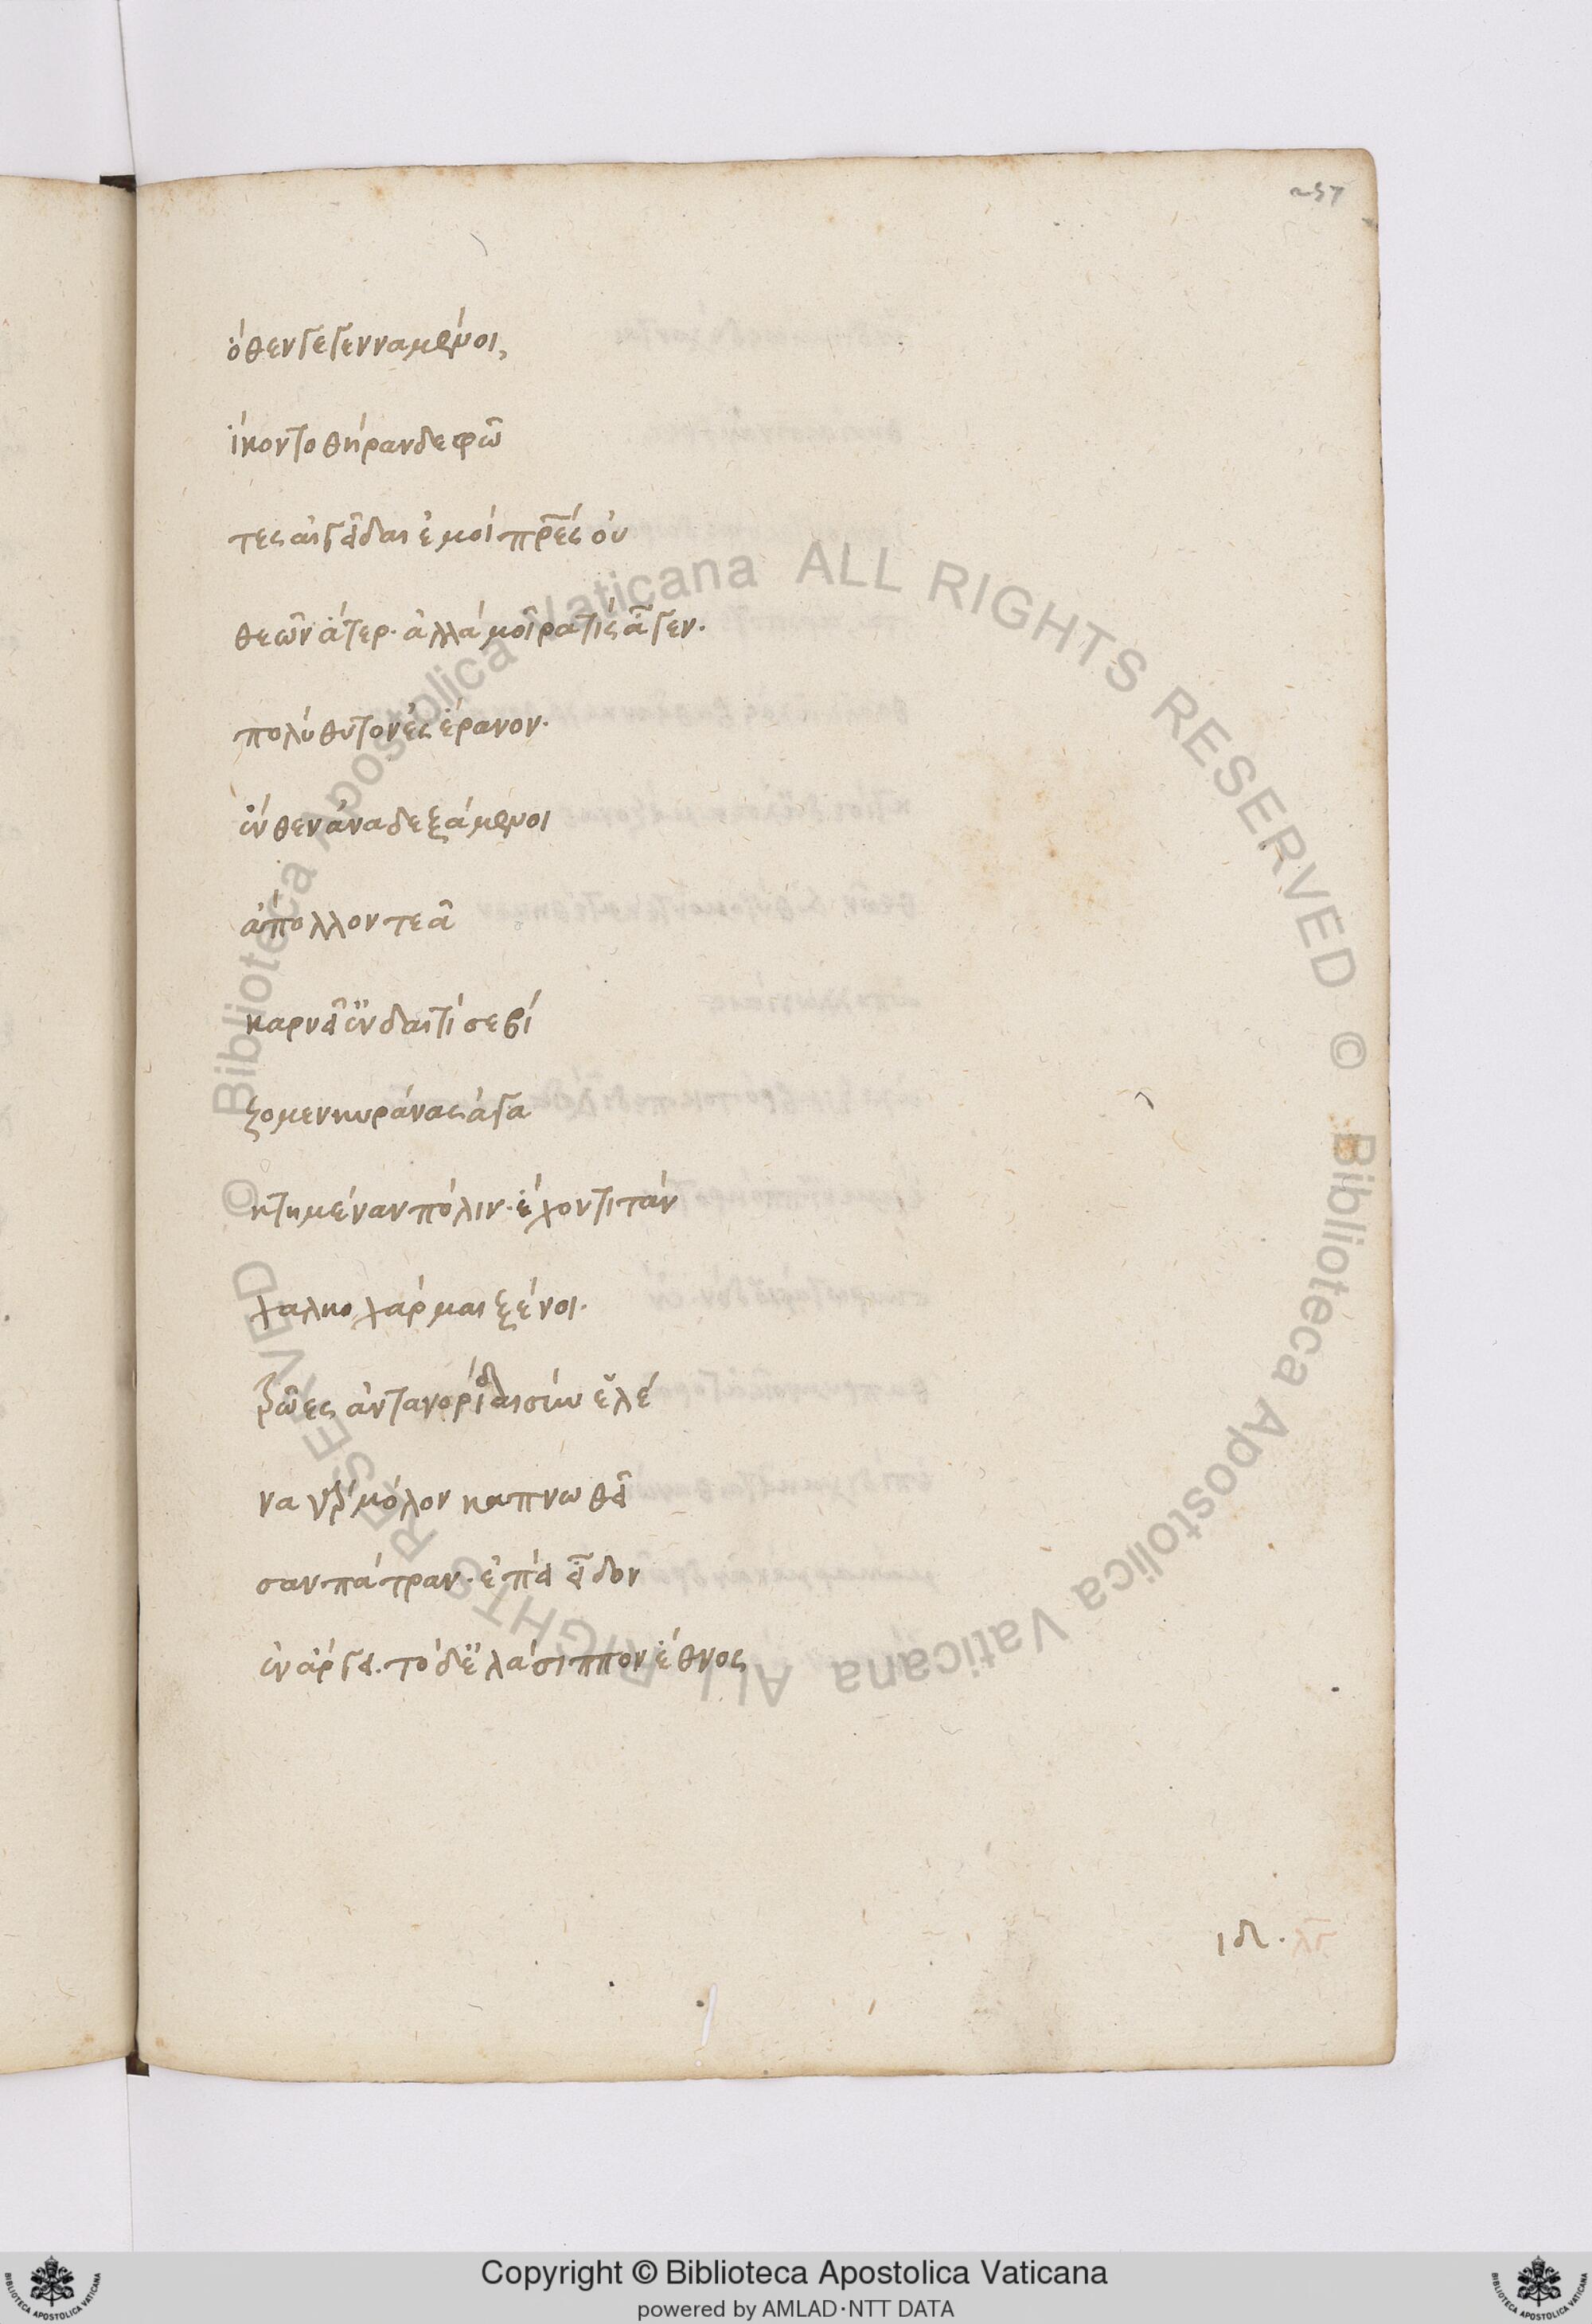 257
ὅθεν γεγενναμένοι,
ἵκοντο θήρανδε φῶ
τες αἰγεῖδαι ἐμοὶ πρες οὐ
θεῶν ἄτερ· ἀλλὰ μοῖρα τὶς ἆγεν·
πολύθυτον ἐς ἔρανον·
ἔνθεν ἀναδεξάμενοι
ἄπολλον τεᾶ
καρνεῖ ἐν δαιτὶ σεβί
ζομεν κυράνας ἀγα
κτημέναν πόλιν· ἔχοντι τὰν
χαλκοχάρμαι ξένοι·
τρῶες ἀντανορίδαι σὺν ἑλέ
να γὰρ μόλον καπνωθεῖ
σαν πάτραν· ἐπεὶ εἶδον
ἐν ἄργει· τὸ δ' ἐλάσιππον ἔθνος
ιδ. λγ
Biblioteca Apostolica Vaticana ALL RIGHTS RESERVED © Biblioteca Apostolica Vaticana ALL RIGHTS RESERVED ©
Copyright © Biblioteca Apostolica Vaticana
powered by AMLAD·NTT DATA
BIBLIOTECA APOSTOLICA VATICANA
BIBLIOTECA APOSTOLICA VATICANA